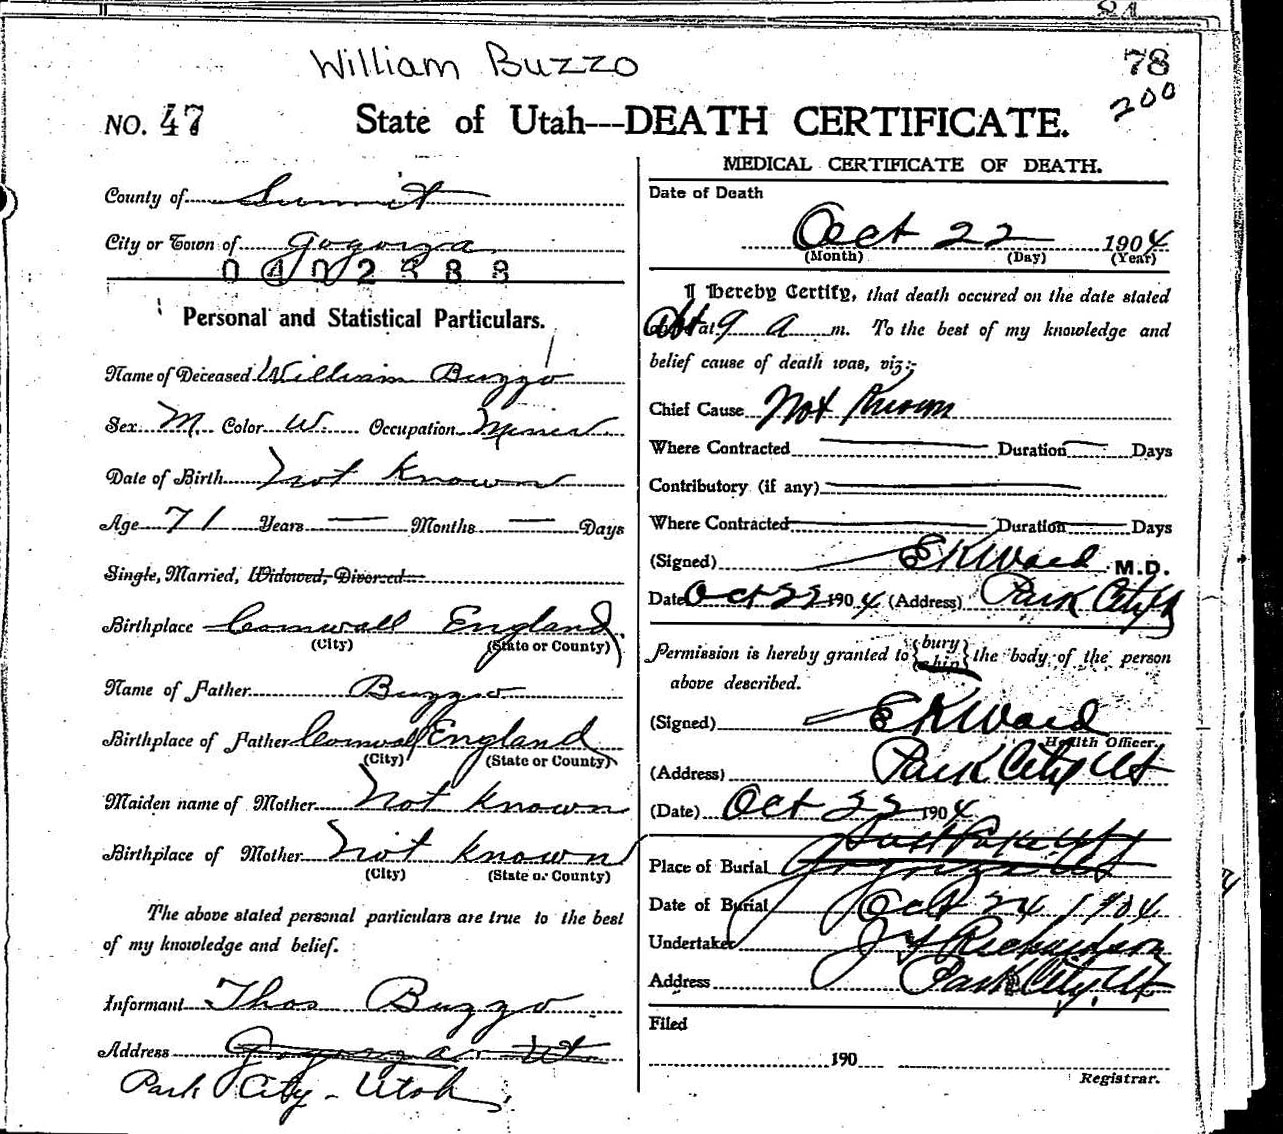 William Buzzo
78
200
NO. 47 State of Utah---DEATH CERTIFICATE.
County of Summit
City or Town of Gogorza
0402388
Personal and Statistical Particulars.
Name of Deceased William Buzzo
Sex M. Color W. Occupation Miner
Date of Birth Not Known
Age 71 Years — Months — Days
Single, Married, Widowed, Divorced
Birthplace Cornwall England
(City) (State or County)
Name of Father Buzzo
Birthplace of Father Cornwall England
(City) (State or County)
Maiden name of Mother Not Known
Birthplace of Mother Not Known
(City) (State or County)
The above stated personal particulars are true to the best
of my knowledge and belief.
Informant Thos Buzzo
Address Gogorza Ut
Park City - Utah.
MEDICAL CERTIFICATE OF DEATH.
Date of Death
Oct 22 1904
(Month) (Day) (Year)
I Hereby Certify, that death occured on the date stated
at 9 a m. To the best of my knowledge and
belief cause of death was, viz:-
Chief Cause Not Known
Where Contracted — Duration — Days
Contributory (if any) —
Where Contracted — Duration — Days
(Signed) E K Ward M.D.
Date Oct 22 1904 (Address) Park City
Permission is hereby granted to {bury ship} the body of the person
above described.
(Signed) E K Ward
Health Officer.
(Address) Park City Ut
(Date) Oct 22 1904
Place of Burial Gogorza Ut
Date of Burial Oct 24 1904
Undertaker Richardson
Address Park City, Ut
Filed
190
Registrar.